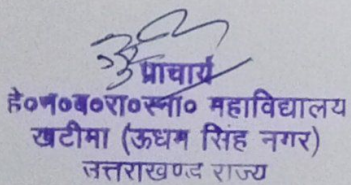 प्राचार्य
हे०न०ब०रा०स्ना० महाविद्यालय
खटीमा (ऊधम सिंह नगर)
उत्तराखण्ड राज्य